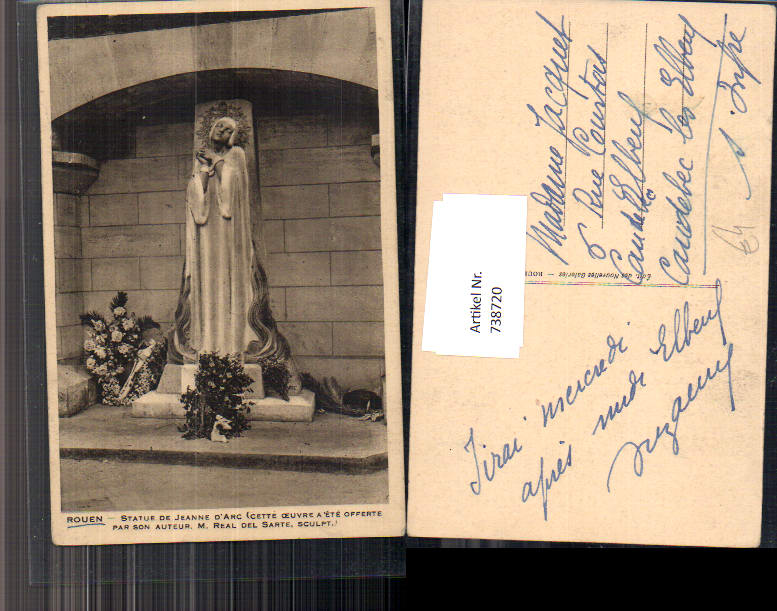 ROUEN – STATUE DE JEANNE D'ARC (CETTE ŒUVRE A'ÉTÉ OFFERTE
PAR SON AUTEUR, M. REAL DEL SARTE, SCULPT.)
Artikel Nr.
738720
Édit. des Nouvelles Galeries — ROUEN
Madame Jacquet
6 Rue Courtois
Caudebec lès Elbeuf
S. Infre
J'irai mercredi
après midi Elbeuf
Suzanne